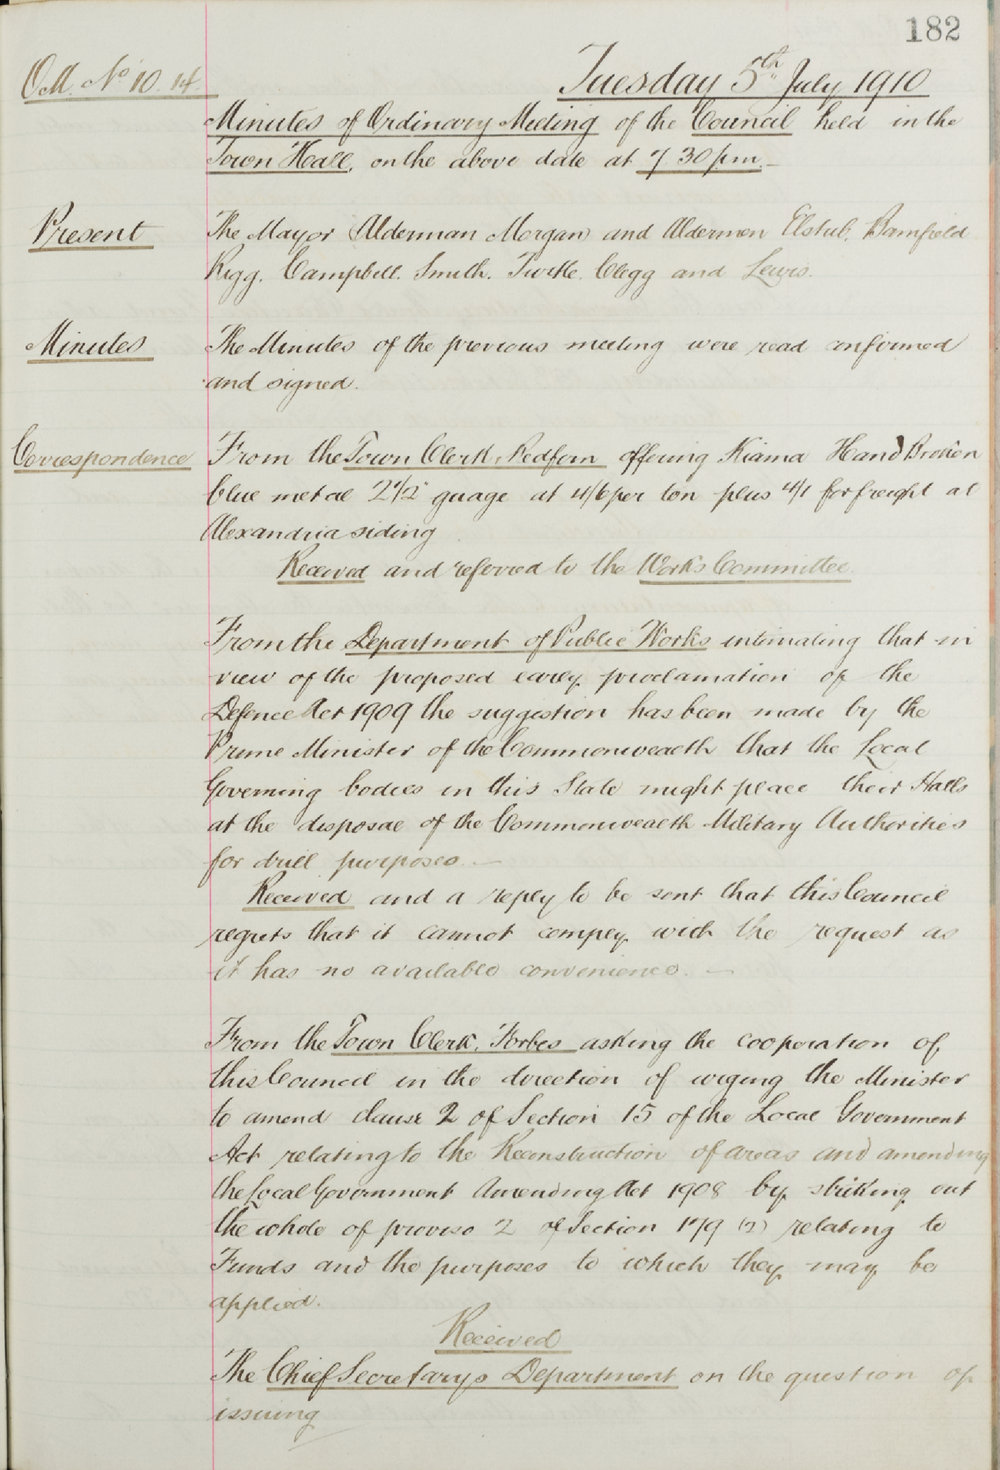 182
O.M. No 10. 14
Tuesday 5th July 1910
Minutes of Ordinary Meeting of the Council held in the
Town Hall, on the above date at 7 30 p.m.
Present
The Mayor (Alderman Morgan) and Aldermen Elstub, Bamfield
Rigg, Campbell. Smith. Turtle. Clegg and Lewis.
Minutes
The Minutes of the previous meeting were read confirmed
and signed.
Correspondence
From the Town Clerk, Redfern offering Kiama Hand Broken
blue metal 2½" guage at 4/6 per ton plus 4/1 for freight at
Alexandria siding
Received and referred to the Works Committee.
From the Department of Public Works intimating that in
view of the proposed early proclamation of the
Defence Act 1909 the suggestion has been made by the
Prime Minister of the Commonwealth that the Local
Governing bodies in this State might place their Halls
at the disposal of the Commonwealth Military Authorities
for drill purposes. —
Received and a reply to be sent that this Council
regrets that it cannot comply with the request as
it has no available convenience. —
From the Town Clerk, Forbes asking the cooperation of
this Council in the direction of urging the Minister
to amend clause 2 of Section 15 of the Local Government
Act relating to the Reconstruction of areas and amending
the Local Government Amending Act 1908 by striking out
the whole of proviso 2 of Section 179 (2) relating to
Funds and the purposes to which they may be
applied.
Received
The Chief Secretarys Department on the question of
issuing